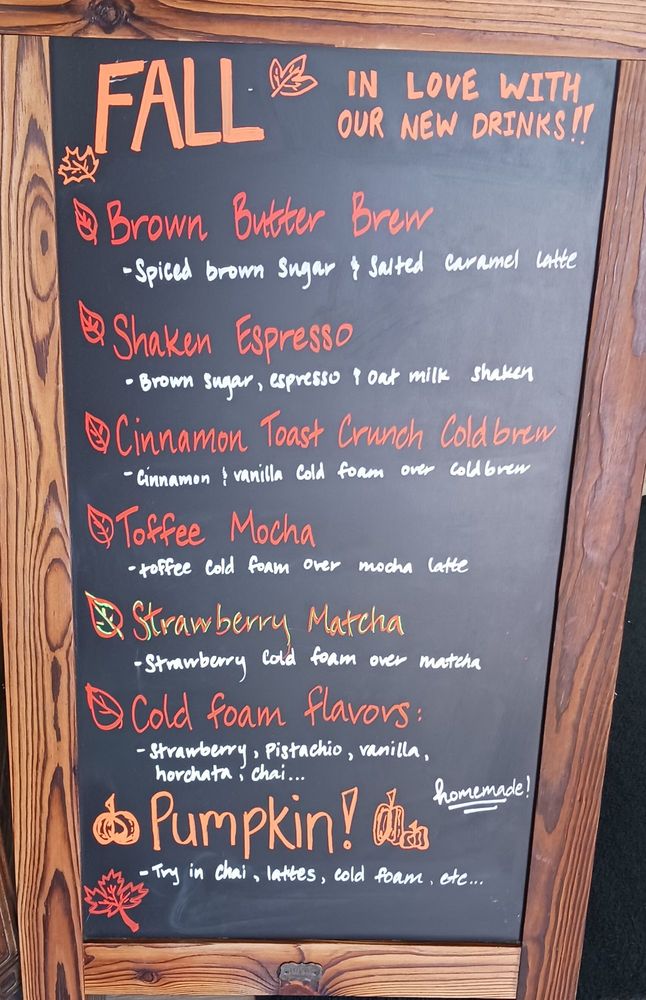 FALL
IN LOVE WITH
OUR NEW DRINKS!!
Brown Butter Brew
- Spiced brown Sugar & Salted caramel latte
Shaken Espresso
- Brown Sugar, espresso & oat milk shaken
Cinnamon Toast Crunch Coldbrew
- Cinnamon & vanilla Cold foam over coldbrew
Toffee Mocha
- toffee Cold foam over mocha latte
Strawberry Matcha
- Strawberry Cold foam over matcha
Cold foam flavors:
- Strawberry, Pistachio, vanilla,
horchata, chai...
homemade!
Pumpkin!
- Try in chai, lattes, cold foam, etc...